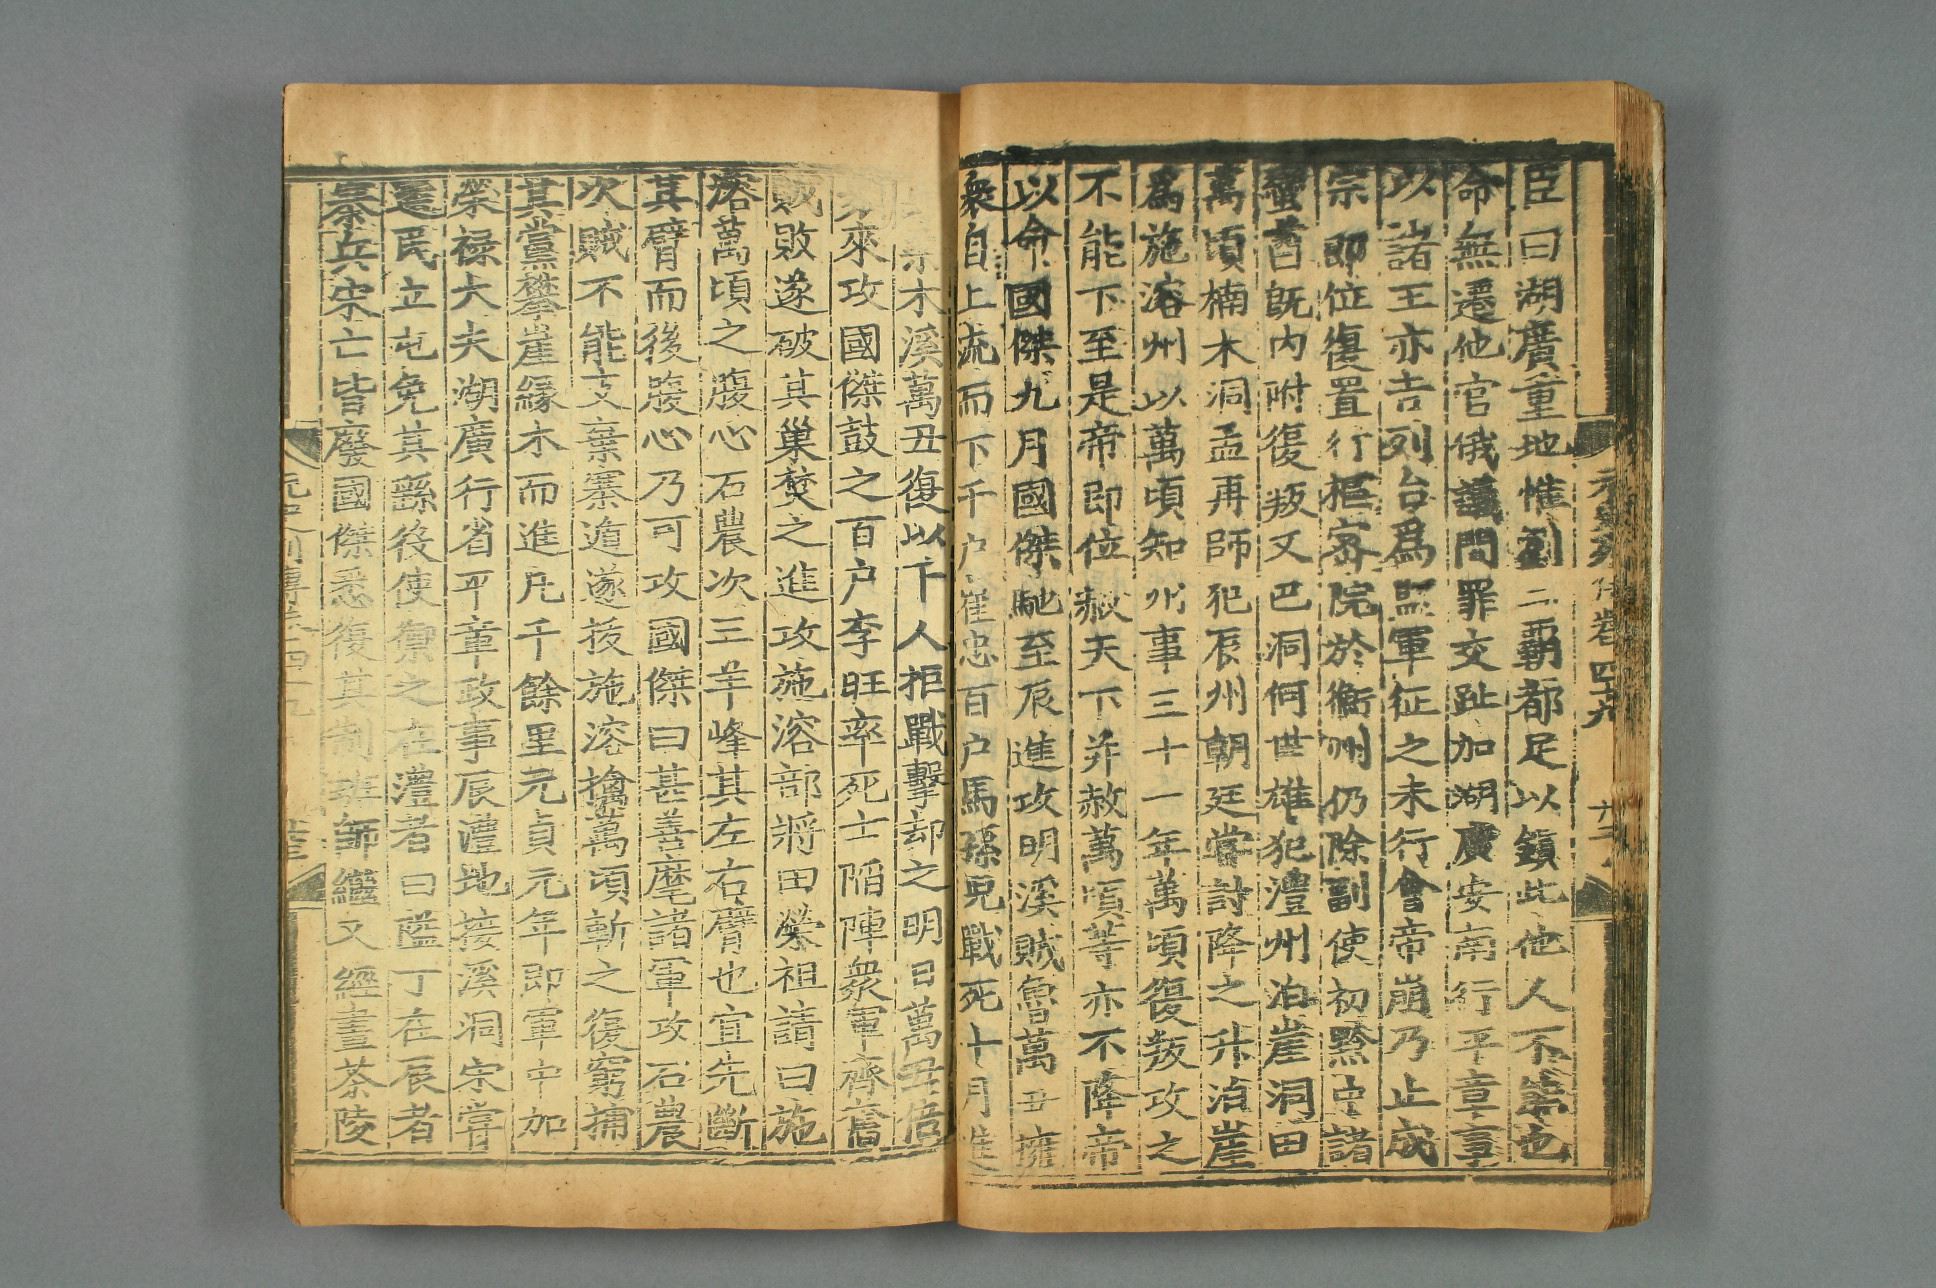 臣曰湖廣重地惟劉二霸都足以鎮此他人不能也
命無遷他官俄議問罪交趾加湖廣安南行平章事
以諸王亦吉列台爲監軍征之未行會帝崩乃止成
宗即位復置行樞宻院於衡州仍除副使初黔中諸
蠻酋旣内附復叛又巴洞何世雄犯澧州泊崖洞田
萬頃楠木洞孟再師犯辰州朝廷嘗討降之升泊崖
爲施溶州以萬頃知州事三十一年萬頃復叛攻之
不能下至是帝即位赦天下并赦萬頃等亦不降帝
以命國傑九月國傑馳至辰進攻明溪賊魯萬丑擁
衆自上流而下千户崔忠百户馬孫兒戰死十月進
桑木溪萬丑復以千人拒戰擊却之明日萬丑倍
衆來攻國傑鼓之百户李旺率死士陷陣衆軍齊奮
賊敗遂破其巢焚之進攻施溶部將田榮祖請曰施
溶萬頃之腹心石農次三羊峰其左右臂也宜先斷
其臂而後腹心乃可攻國傑曰甚善麾諸軍攻石農
次賊不能支棄寨遁遂拔施溶擒萬頃斬之復窮捕
其黨攀崖緣木而進凡千餘里元貞元年即軍中加
榮禄大夫湖廣行省平章政事辰澧地接溪洞宋嘗
選民立屯免其繇役使禦之在澧者曰隘丁在辰者
曰寨兵宋亡皆廢國傑悉復其制班師繼又經畫茶陵
元史列傳卷四十九
十三